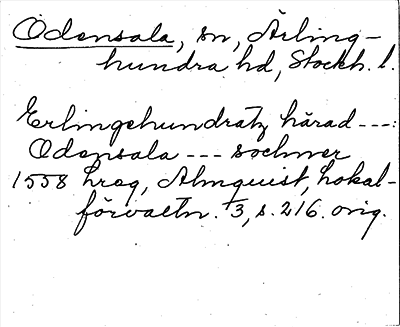 Odensala, sn, Ärling-
hundra hd, Stockh. l.
Erlingehundratz härad ---:
Odensala --- sochner
1558 hreg, Almquist, Lokal-
förvaltn. 1/3, s. 216. orig.